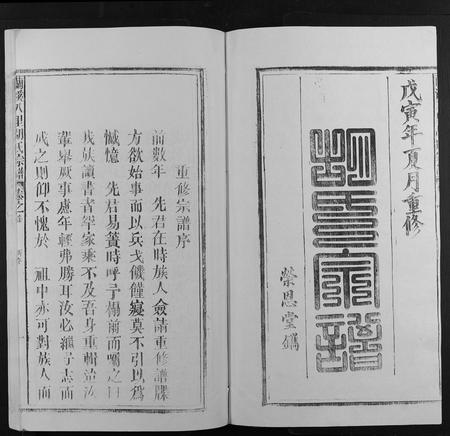 戊寅年夏月重修
胡氏宗譜
榮恩堂鐫
重修宗譜序
前數年　先君在時族人僉請重修譜牒
方欲始事而以兵戈饑饉寢莫不引以為
憾憶　先君易簀時呼予榻前而囑之曰
我族讀書者罕家乘不及吾身重輯治汝
輩畢厥事慮年輕弗勝耳汝必繼予志而
成之則仰不愧於　祖中亦可對族人而
八里胡氏宗譜 卷之